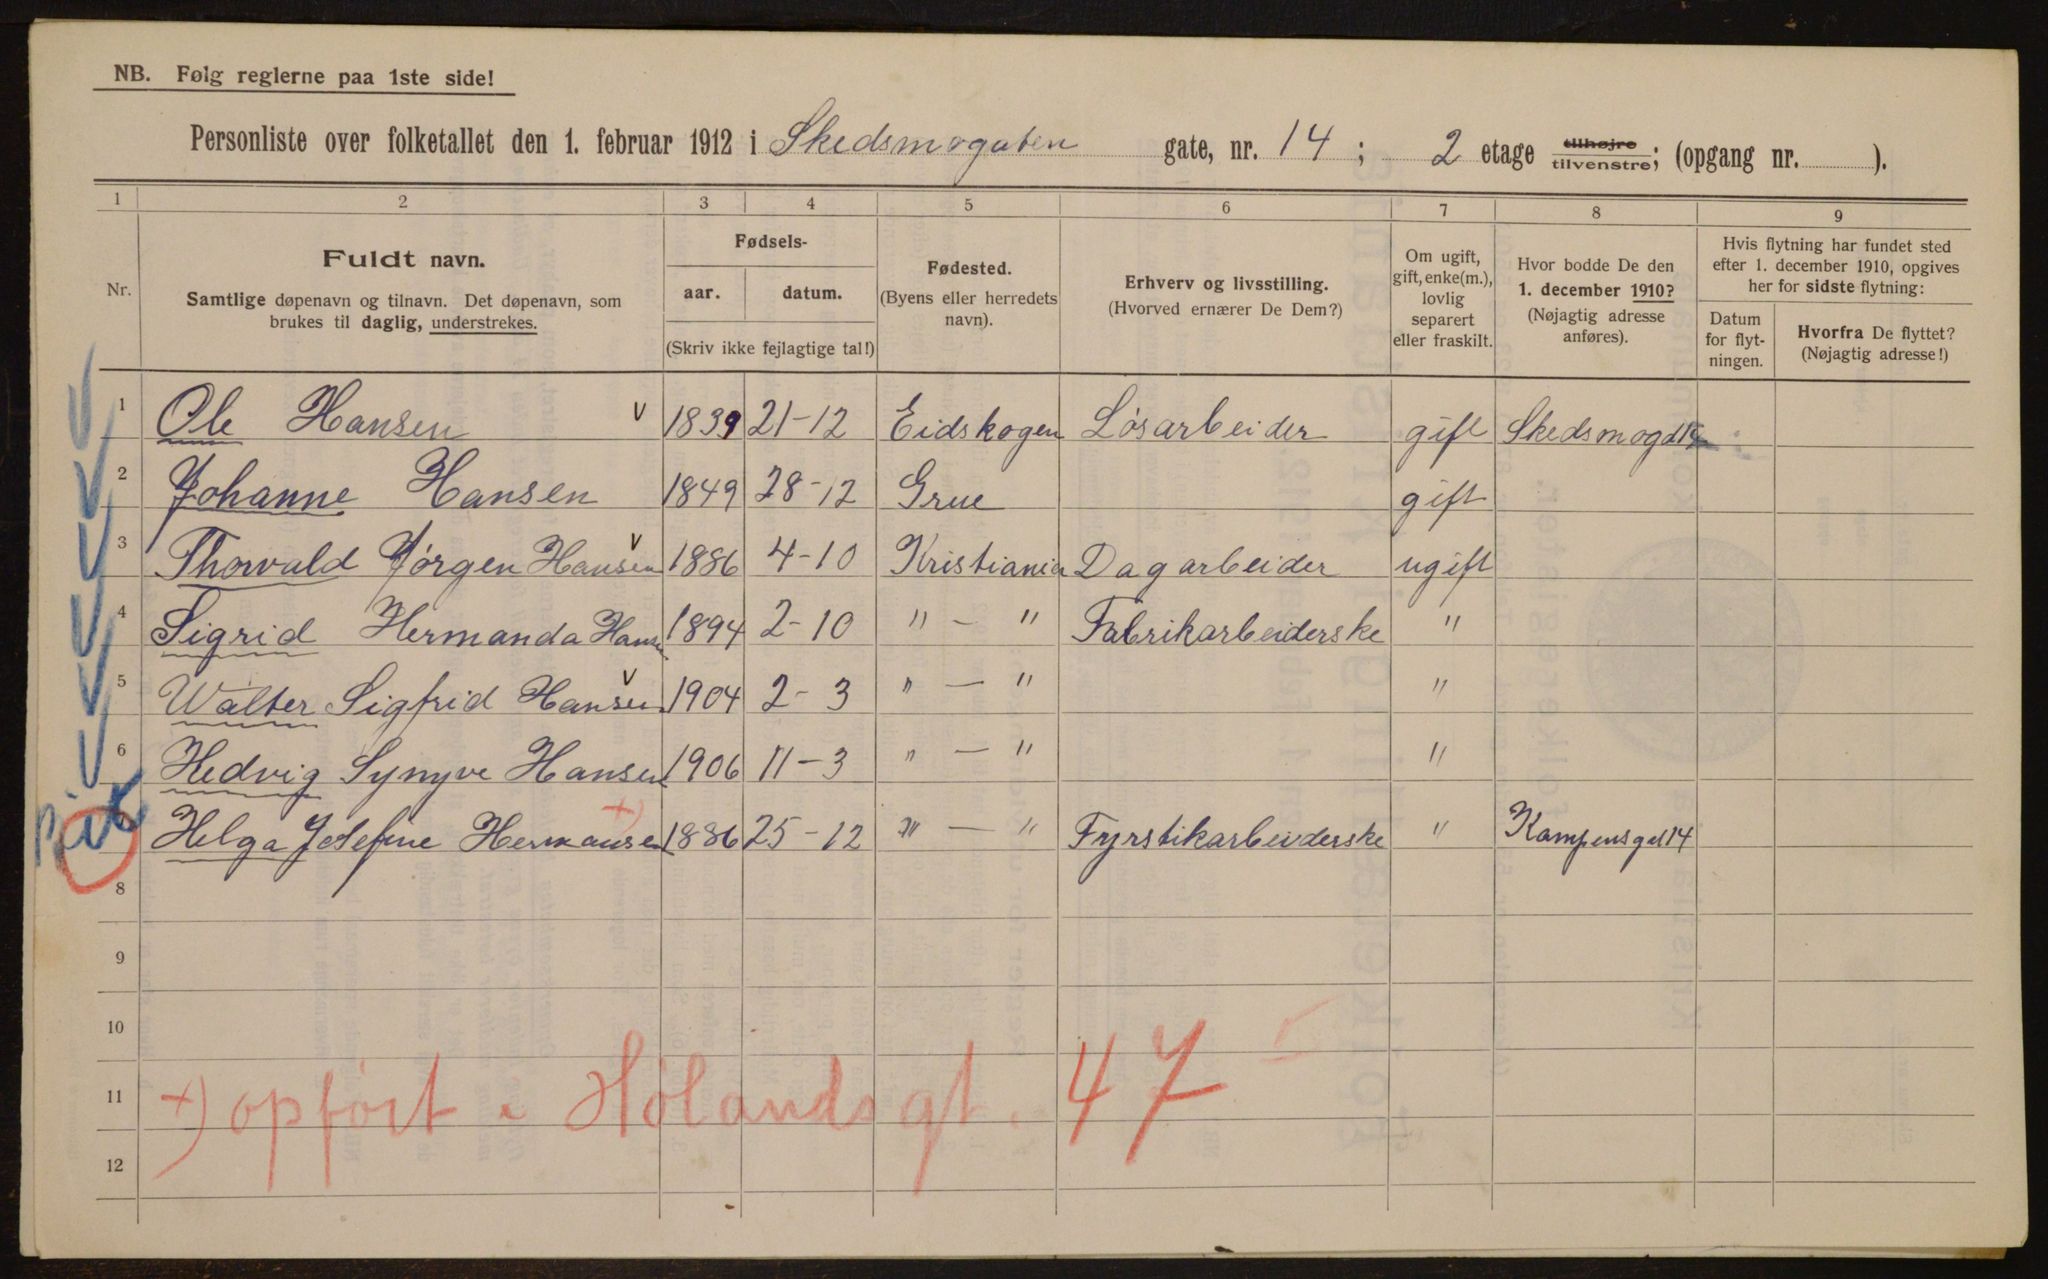 NB. Følg reglerne paa 1ste side!
Personliste over folketallet den 1. februar 1912 i Skedsmogaten gate, nr. 14 ; 2 etage tilhøjre tilvenstre; (opgang nr. ).
1 2 3 4 5 6 7 8 9
Nr.
Fuldt navn.
Samtlige døpenavn og tilnavn. Det døpenavn, som
brukes til daglig, understrekes.
Fødsels-
aar. datum.
(Skriv ikke fejlagtige tal!)
Fødested.
(Byens eller herredets
navn).
Erhverv og livsstilling.
(Hvorved ernærer De Dem?)
Om ugift,
gift, enke(m.),
lovlig
separert
eller fraskilt.
Hvor bodde De den
1. december 1910?
(Nøjagtig adresse
anføres).
Hvis flytning har fundet sted
efter 1. december 1910, opgives
her for sidste flytning:
Datum
for flyt-
ningen.
Hvorfra De flyttet?
(Nøjagtig adresse!)
1 Ole Hansen v 1839 21-12 Eidskogen Løsarbeider gift Skedsmogd 14
2 Johanne Hansen 1849 28-12 Grue gift
3 Thorvald Jørgen Hansen v 1886 4-10 Kristiania Dagarbeider ugift
4 Sigrid Hermanda Hansen 1894 2-10 " - " Fabrikarbeiderske "
5 Walter Sigfrid Hansen v 1904 2-3 " - " "
6 Hedvig Synyve Hansen 1906 11-3 " - " "
Helga Josefine Hermansen +) 1886 25-12 " - " Fyrstikarbeiderske " Kampensgd 14
8
9
10
11 +) opført i Hølandsgt. 47
12